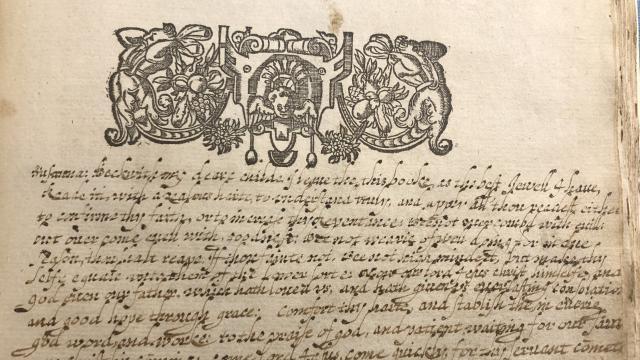 Susanna: Beckwith my deare childe I geue the, this booke, as the best Jewell I haue,
Reade itt, with a zealous harte, to understand truly, and apon all thou readest either
to confirme thy faith, or to increase thy repentance: bee not ouercomd with euill
but ouer come euell with goodnes: bee not wearie of well doing for in due
season, thou shalt reape, if thou fainte not, bee not high minded, but make thy
selfe equale with them of the lower sorte: now our lord Iesus christ himselfe, and
god euen our father, which hath loued us, and hath given us euerlasting consolation
and good hope through grace; Comfort thy harte, and stablish the in euerie
good word, and worke: to the praise of god, and patient waiting for our
come quickly, for thy seruant cometh